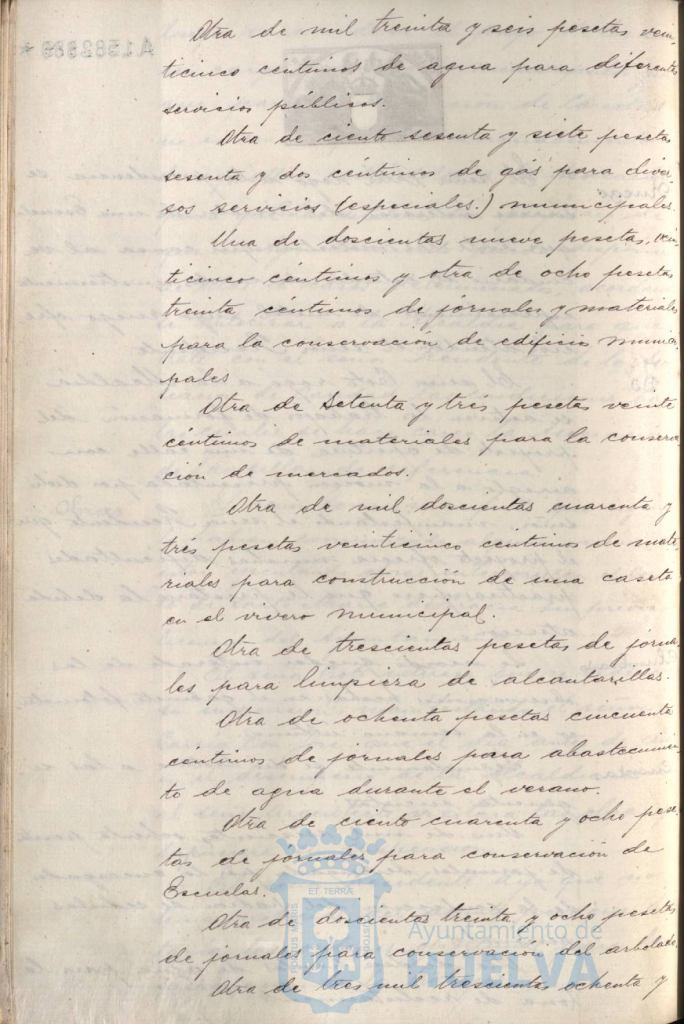 Otra de mil treinta y seis pesetas vein-
ticinco céntimos de agua para diferentes
servicios públicos.
Otra de ciento sesenta y siete pesetas
sesenta y dos céntimos de gás para diver-
sos servicios (especiales.) municipales.
Una de doscientas nueve pesetas, vein-
ticinco céntimos y otra de ocho pesetas
treinta céntimos de jórnales y materiales
para la conservación de edificios munici-
pales
Otra de Setenta y trés pesetas veinte
céntimos de materiales para la conserva-
ción de mercados.
Otra de mil doscientas cuarenta y
trés pesetas veinticinco centimos de mate-
riales para construcción de una caseta
en el vivero municipal.
Otra de trescientas pesetas de jorna-
les para limpieza de alcantarillas.
Otra de ochenta pesetas cincuenta
céntimos de jornales para abastecimien-
to de agua durante el verano.
Otra de ciento cuarenta y ocho pese-
tas de jórnales para conservación de
Escuelas.
Otra de doscientas treinta y ocho pesetas
de jornales para conservación del arbolado.
Otra de tres mil trescientas ochenta y
ET TERRÆ
Ayuntamiento de
HUELVA